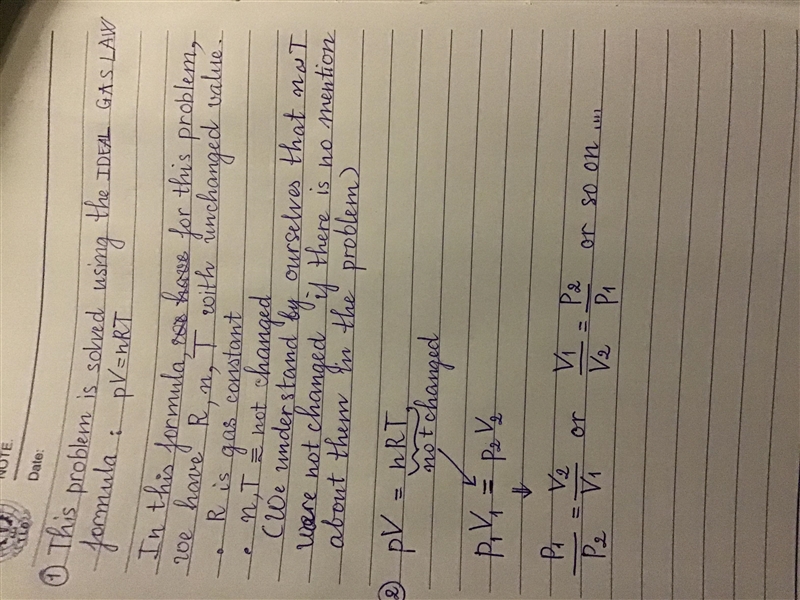 NOTE.
Date:
① This problem is solved using the IDEAL GAS LAW
formula : pV = nRT
In this formula, we have for this problem,
we have R, n, T with unchanged value.
• R is gas constant
• n, T = not changed
(We understand by ourselves that n & T
were not changed if there is no mention
about them in the problem)
② pV = nRT
not changed
P₁V₁ = P₂V₂
⇓
P₁/P₂ = V₂/V₁ or V₁/V₂ = P₂/P₁ or so on ....